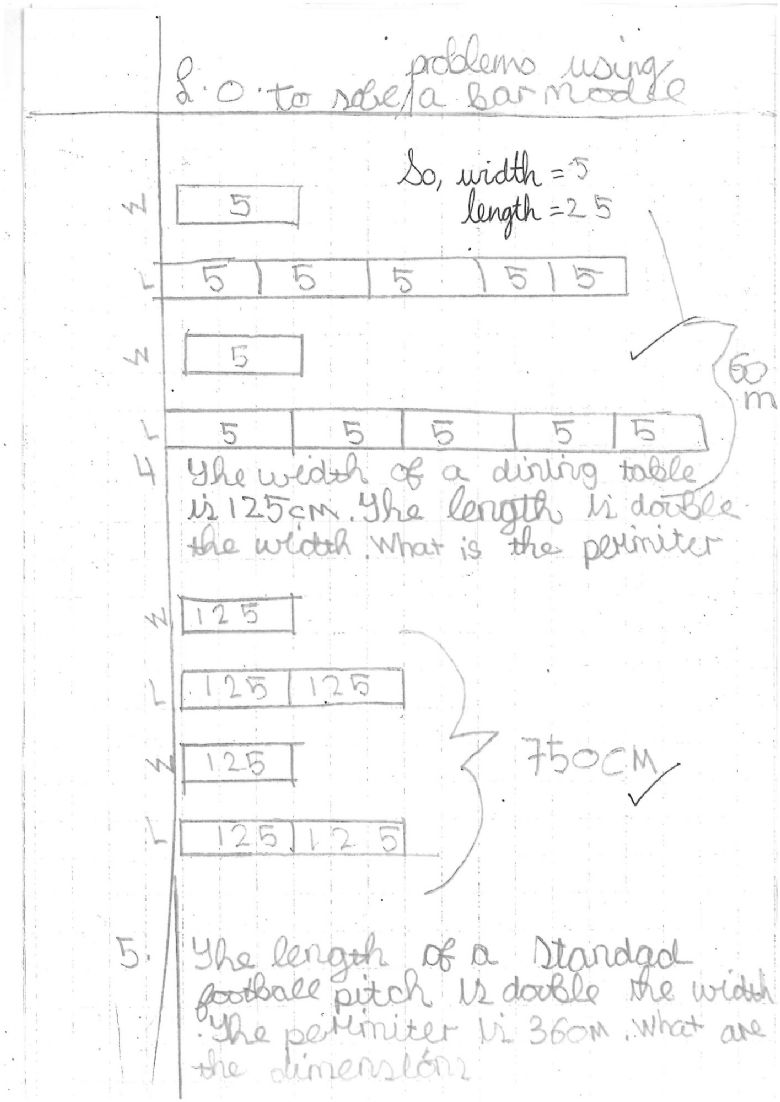 problems using
L.O. to solve/a Bar model
So, width = 5
length = 25
W 5
L 5 5 5 5 5
W 5
60
m
L 5 5 5 5 5
4 The width of a dining table
is 125cm. The length is double
the width. What is the perimiter
W 125
L 125 125
W 125
750CM
L 125 125
5. The length of a standad
football pitch is double the width
. The perimiter is 360M. What are
the dimensions